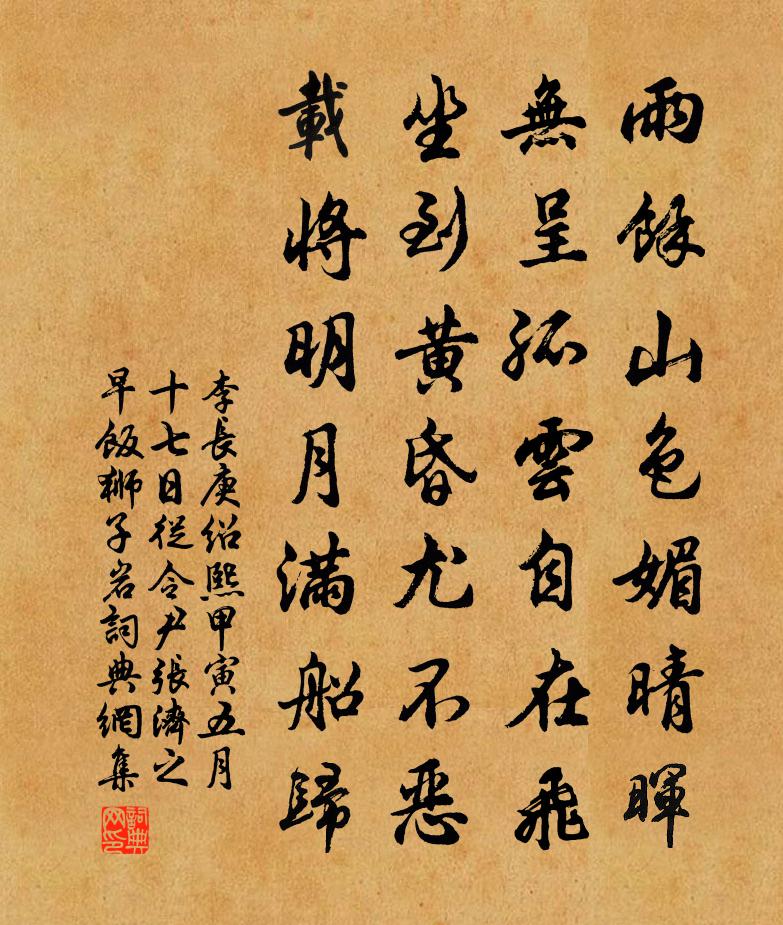 雨餘山色媚晴暉
無呈孤雲自在飛
坐到黃昏尤不惡
載將明月满船歸
李長庚紹熙甲寅五月
十七日從令尹張濟之
早飯獅子岩詞典網集
詞典网印